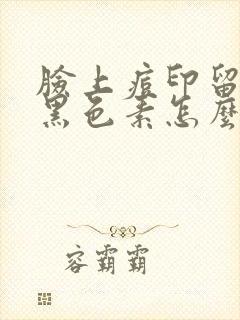 臉上痘印留
黑色素怎麼
容霸霸